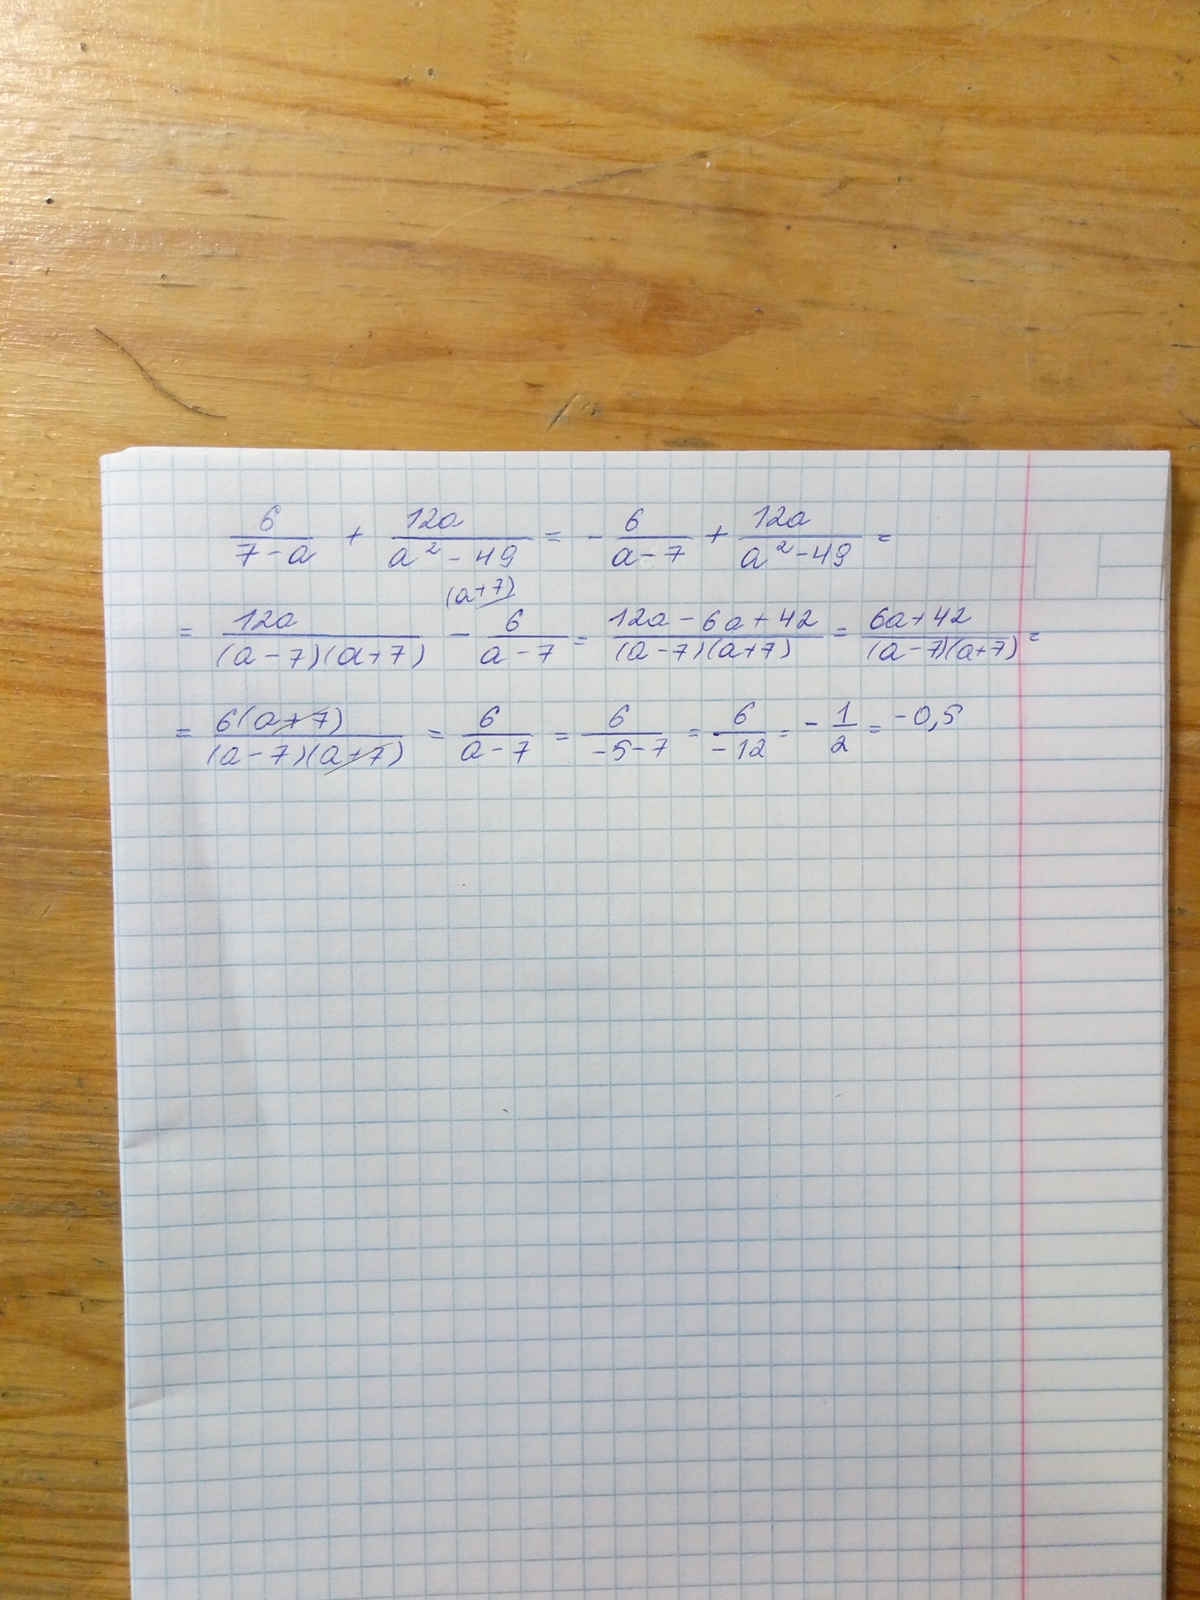 6/(7-a) + 12a/(a²-49) = -6/(a-7) + 12a/(a²-49) =
(a+7)
= 12a/((a-7)(a+7)) - 6/(a-7) = (12a-6a+42)/((a-7)(a+7)) = (6a+42)/((a-7)(a+7)) =
= 6(a+7)/((a-7)(a+7)) = 6/(a-7) = 6/(-5-7) = 6/(-12) = -1/2 = -0,5